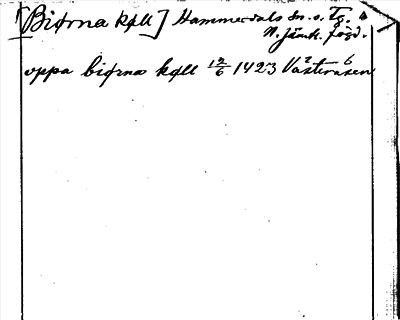 [Biørna køll] Hammerdals sn. o. Tg.
N. Jämtl. fögd.
oppa biørna køll 12/6 1423 Västeråsen